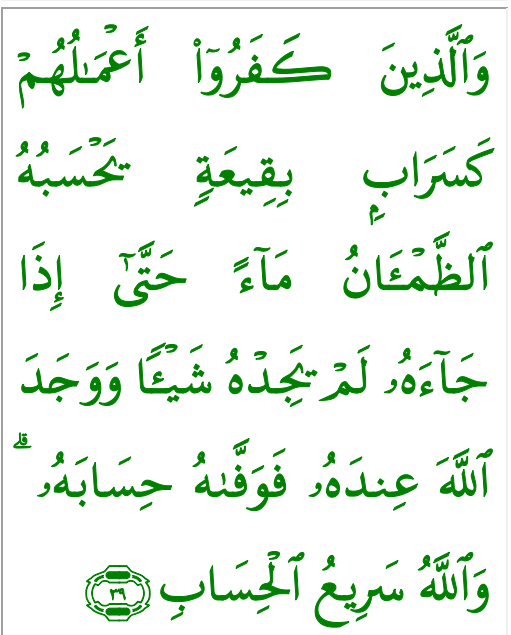 وَٱلَّذِينَ كَفَرُوٓا۟ أَعْمَـٰلُهُمْ
كَسَرَابٍۭ بِقِيعَةٍ يَحْسَبُهُ
ٱلظَّمْـَٔانُ مَآءً حَتَّىٰٓ إِذَا
جَآءَهُۥ لَمْ يَجِدْهُ شَيْـًٔا وَوَجَدَ
ٱللَّهَ عِندَهُۥ فَوَفَّىٰهُ حِسَابَهُۥ ۗ
وَٱللَّهُ سَرِيعُ ٱلْحِسَابِ ٣٩